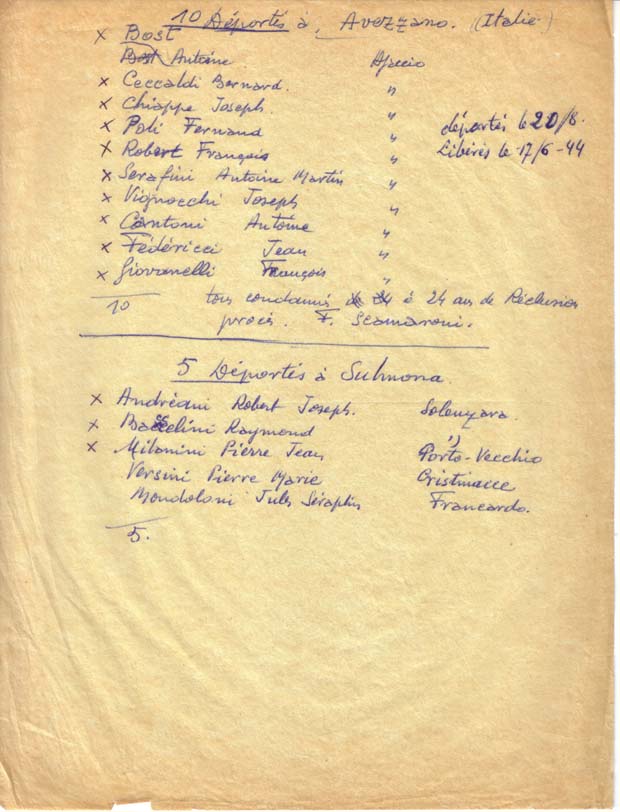 10 Déportés à Avezzano. (Italie)
x Bost
Bost Antoine Ajaccio
x Ceccaldi Bernard. "
x Chiappe Joseph. "
x Poli Fernand " déportés le 20/8.
x Robert François " Libérés le 17/6-44
x Serafini Antoine Martin "
x Vignocchi Joseph "
x Cantoni Antoine "
x Fédéricci Jean "
x Giovanelli François "
10 tous condamnés à 24 ans de Réclusion
procès. F. Scamaroni.
5 Déportés à Sulmona.
x Andréani Robert Joseph. Solenzara.
x Raymond "
x Milanini Pierre Jean Porto-Vecchio
Versini Pierre Marie Cristinacce
Mondoloni Jules Séraphin Francardo.
5.